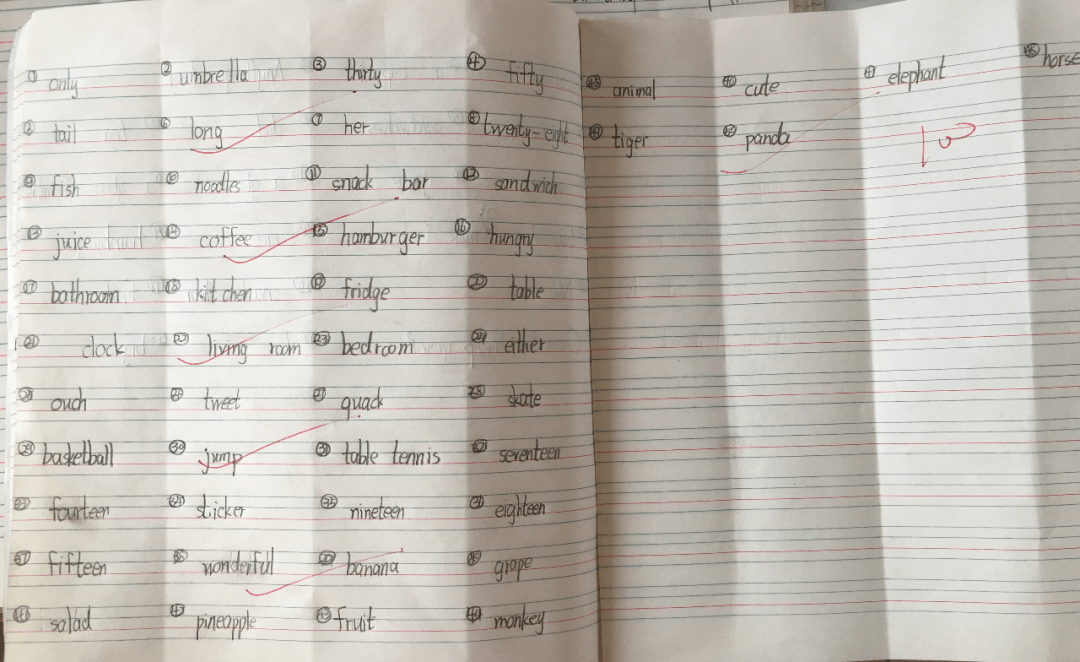 ① only ② umbrella ③ thirty ④ fifty
⑤ tail ⑥ long ⑦ her ⑧ twenty-eight
⑨ fish ⑩ noodles ⑪ snack bar ⑫ sandwich
⑬ juice ⑭ coffee ⑮ hamburger ⑯ hungry
⑰ bathroom ⑱ kitchen ⑲ fridge ⑳ table
㉑ clock ㉒ living room ㉓ bedroom ㉔ either
㉕ ouch ㉖ tweet ㉗ quack ㉘ skate
㉙ basketball ㉚ jump ㉛ table tennis ㉜ seventeen
㉝ fourteen ㉞ sticker ㉟ nineteen ㊱ eighteen
㊲ fifteen ㊳ wonderful ㊴ banana ㊵ grape
㊶ salad ㊷ pineapple ㊸ fruit ㊹ monkey
㊺ animal ㊻ cute ㊼ elephant ㊽ horse
㊾ tiger ㊿ panda
100